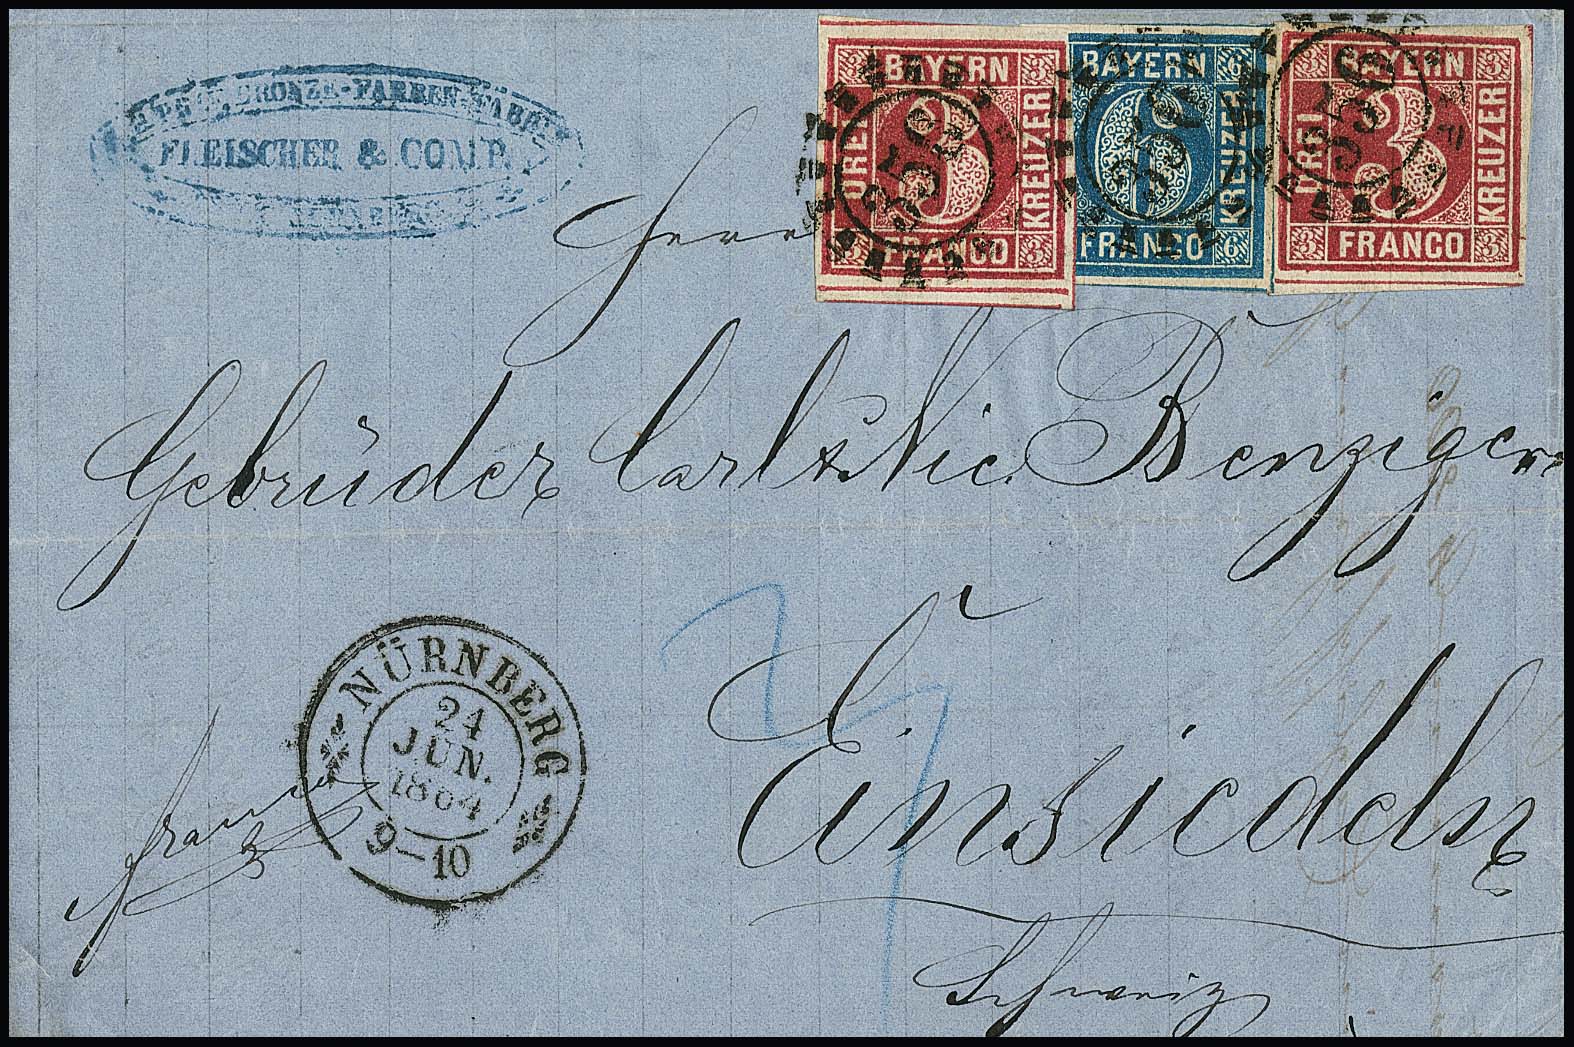 BRONZE-FARBEN-FABRIK
FLEISCHER & COMP.
3 BAYERN 3
DREI 3 KREUZER
3 FRANCO 3
356
BAYERN 6
6 KREUZER
FRANCO 6
356
3 BAYERN 3
DREI 3 KREUZER
3 FRANCO 3
356
Herrn
Gebrüder Carl & Nic. Benziger
Einsiedeln
Schweiz
franco
NÜRNBERG
24
JUN.
1864
9-10